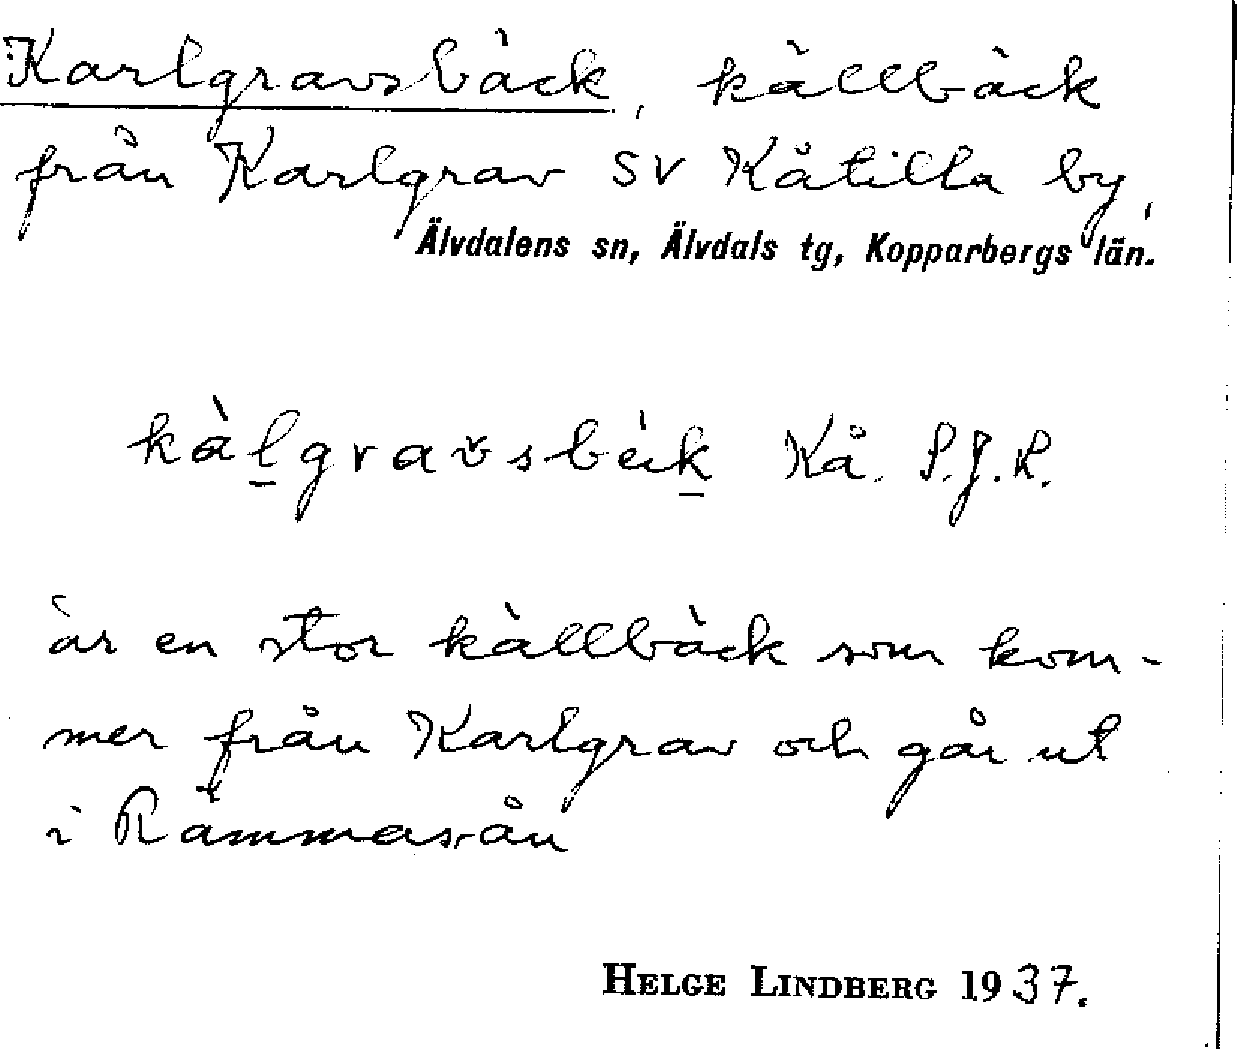 Karlgravsbäck, källbäck
från Karlgrav SV Kåtilla by,
Älvdalens sn, Älvdals tg, Kopparbergs län.
kàl̲gravsbèk̲ Kå. S.J.R.
är en stor källbäck som kom-
mer från Karlgrav och går ut
i Rämmasån
HELGE LINDBERG 1937.